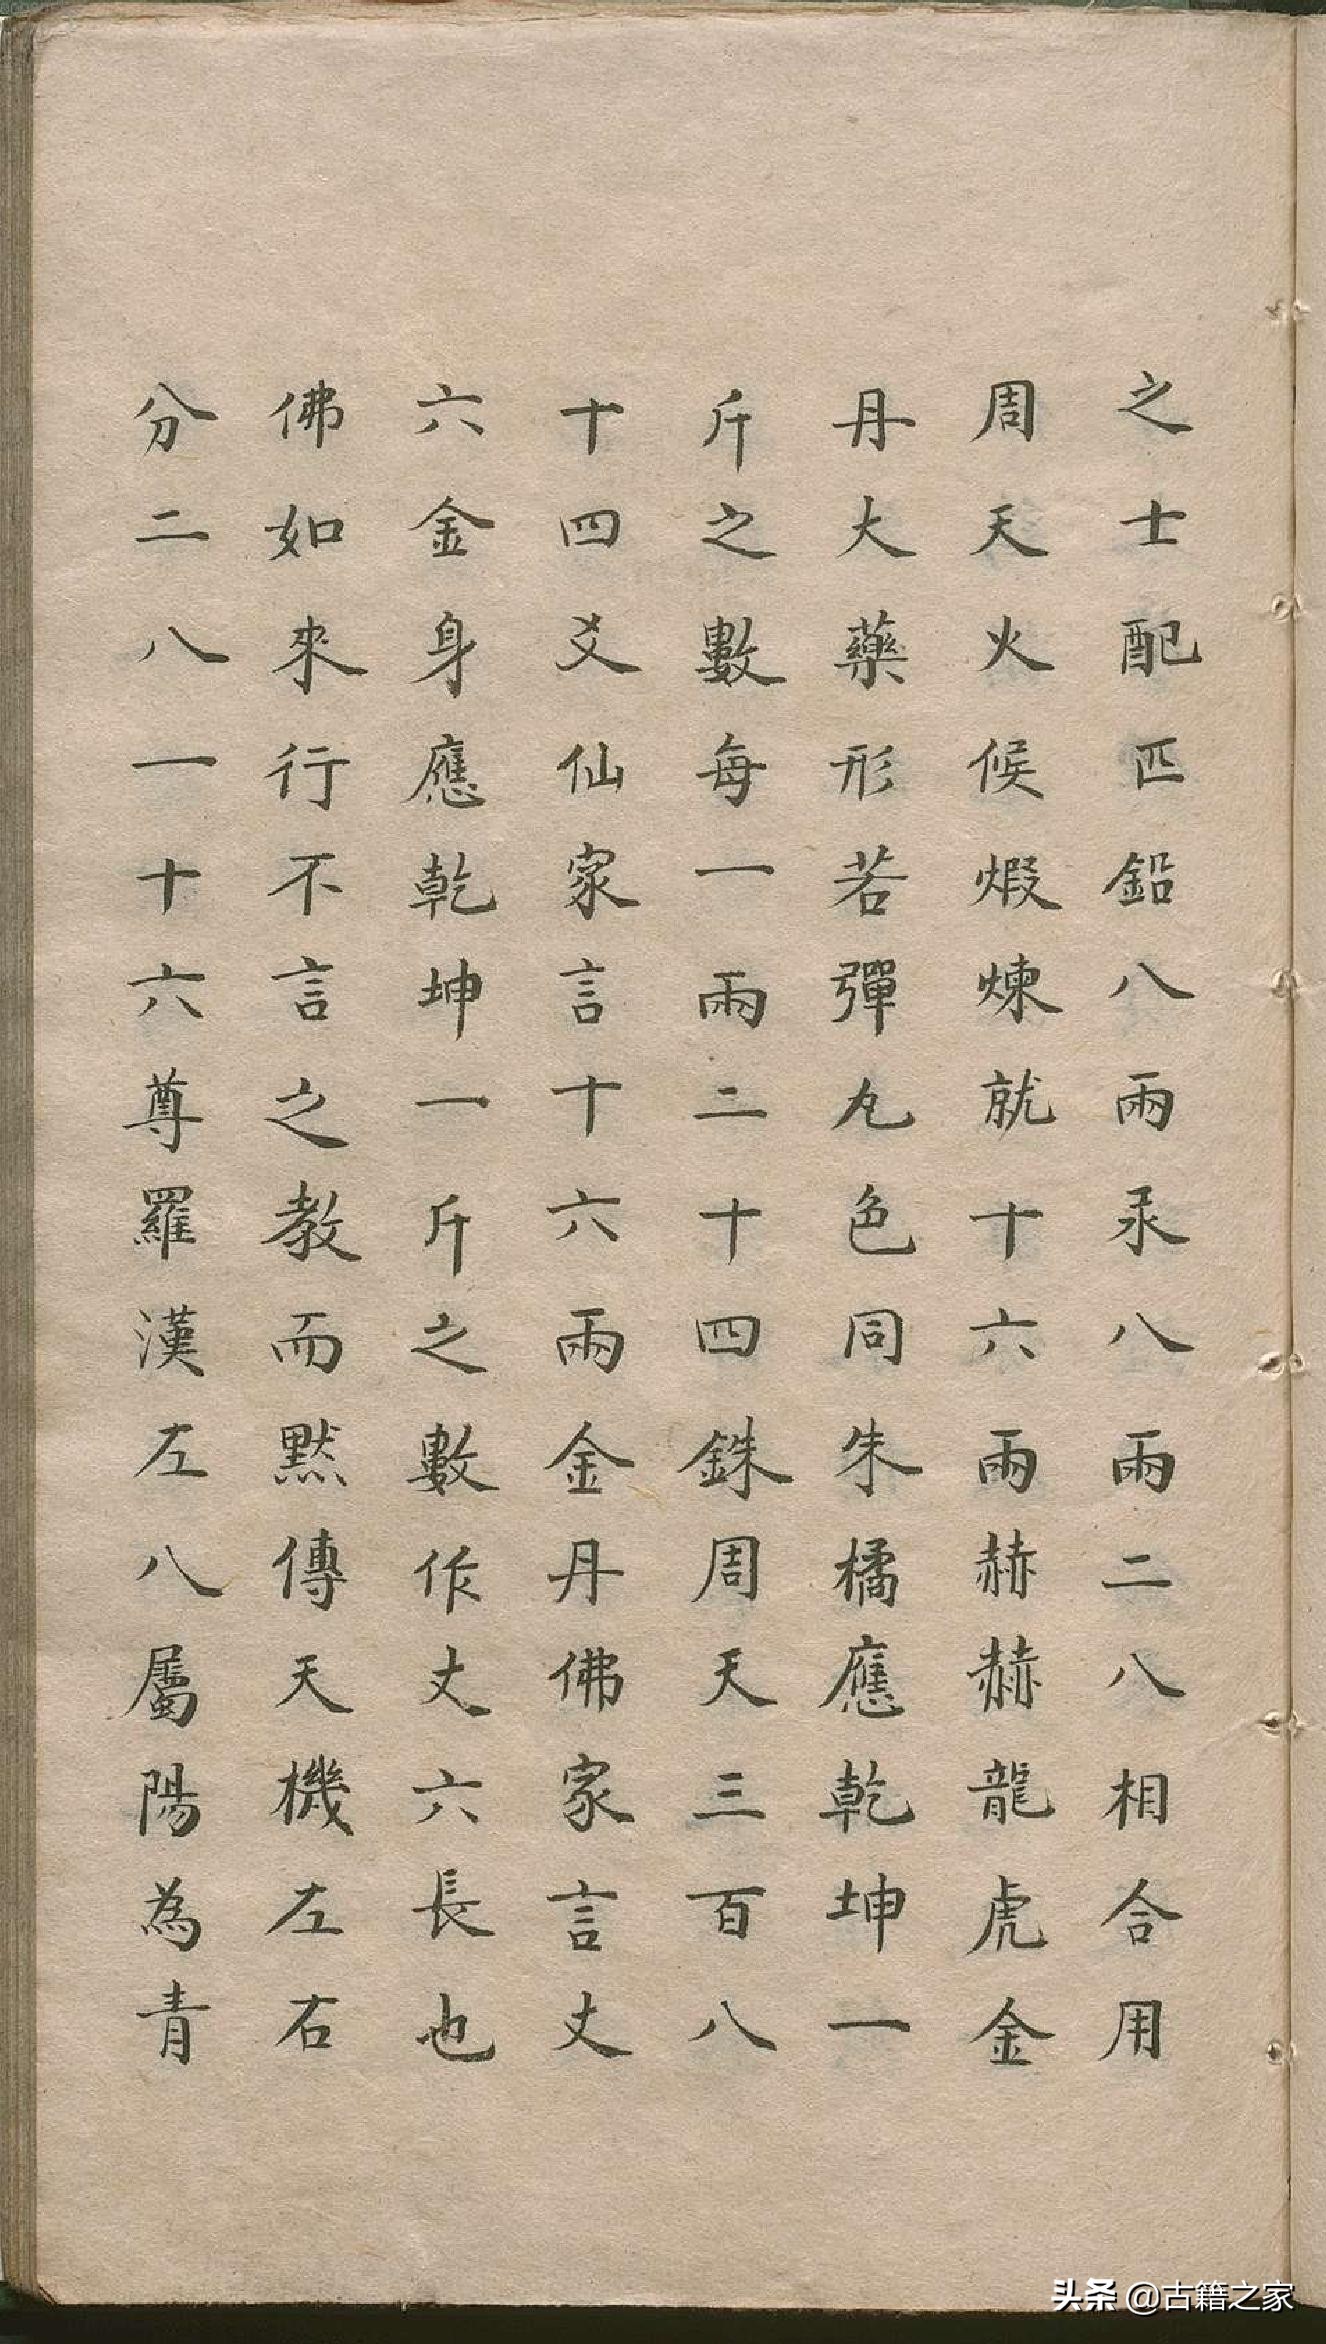 之士配匹鉛八兩汞八兩二八相合用
周天火候煆煉就十六兩赫赫龍虎金
丹大藥形若彈丸色同朱橘應乾坤一
斤之數每一兩二十四銖周天三百八
十四爻仙家言十六兩金丹佛家言丈
六金身應乾坤一斤之數作丈六長也
佛如來行不言之教而默傳天機左右
分二八一十六尊羅漢左八屬陽為青
头条 @古籍之家